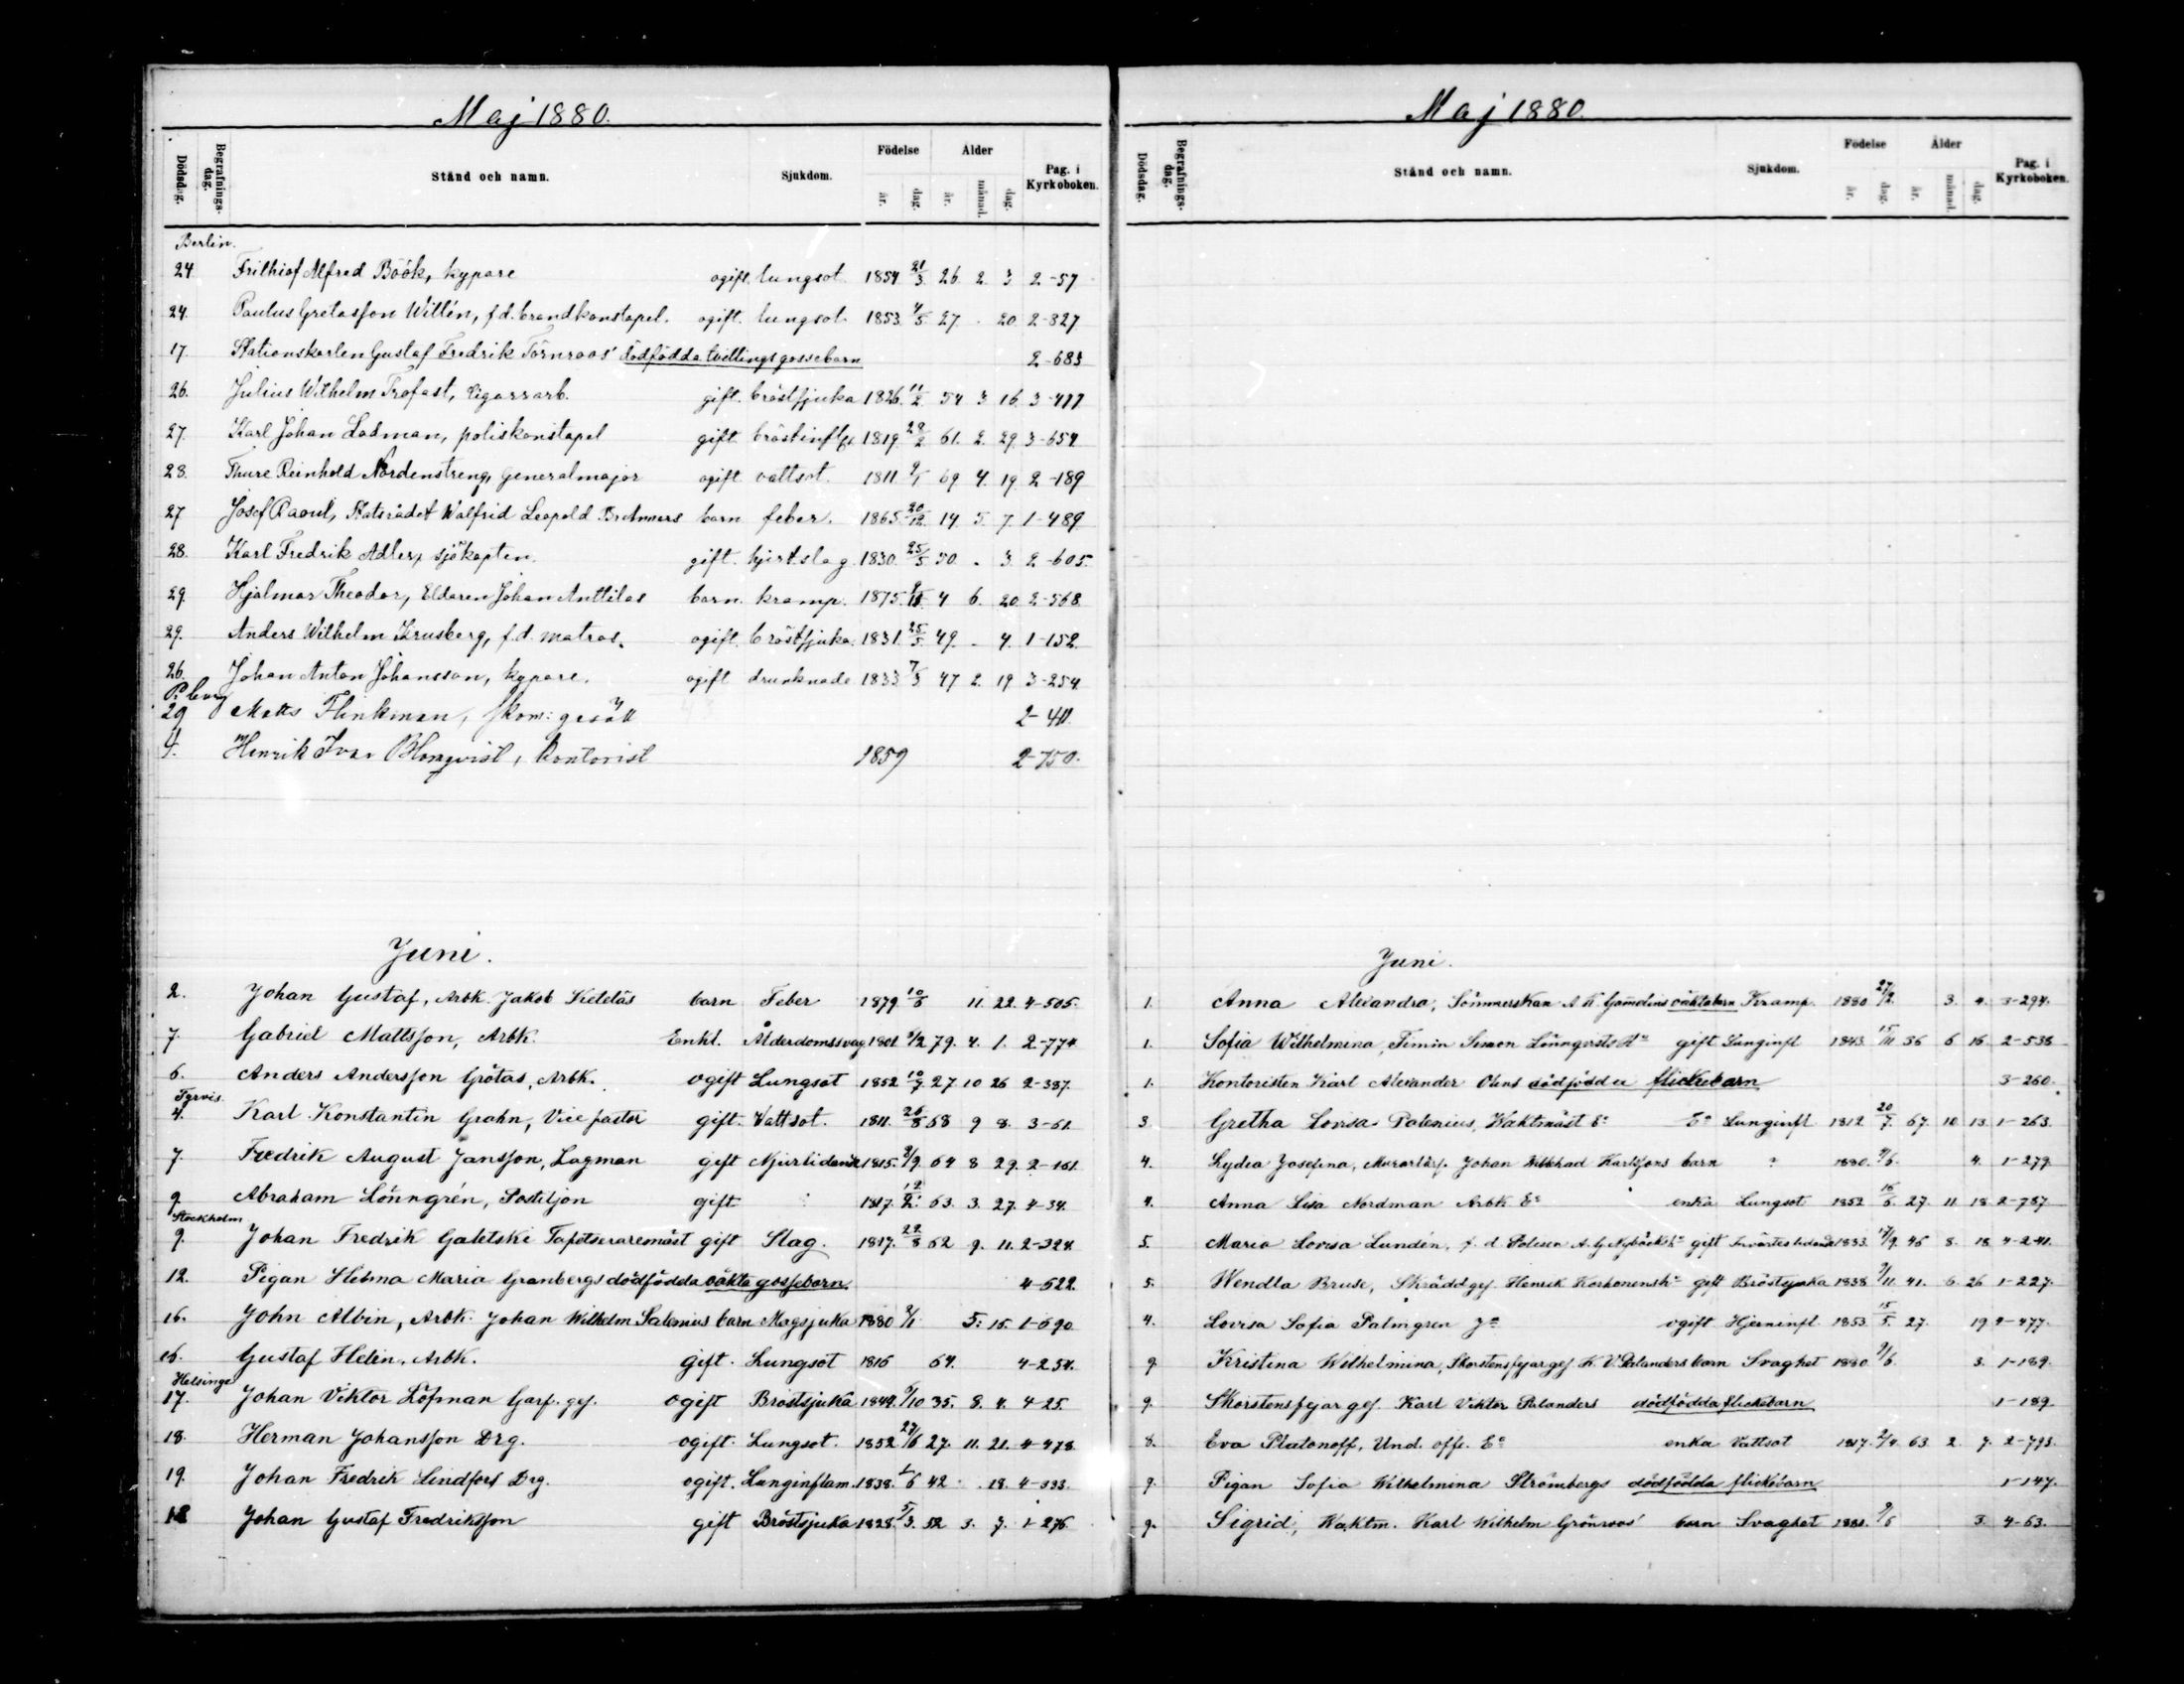 Maj 1880.
Dödsdag. Begrafningsdag. Stånd och namn. Sjukdom. Födelse år. dag. Ålder år. månad. dag. Pag. i Kyrkoboken.
Berlin.
24 Frithiof Alfred Böök, kypare ogift. lungsot 1854 21/3 26 2 3 2-57
24. Paulus Gretasson Willén, f.d. brandkonstapel. ogift. lungsot. 1853 4/5 27 . 20 2-827
17. Stationskarlen Gustaf Fredrik Törnroos' dödfödda tvillings gossebarn 2-683
26. Julius Wilhelm Trofast, Cigarrarb. gift. bröstsjuka 1826 11/2 54 3 16 3-477
27. Karl Johan Ladman, poliskonstapel gift bröstinfl. 1819 28/2 61. 2. 29 3-654
28. Thure Reinhold Nordenstreng, generalmajor ogift vattsot. 1811 9/1 69 4. 19 2-189
27 Josef Raoul, Statsrådet Walfrid Leopold Brunners barn feber. 1865 20/12 14 5 7 1-489
28. Karl Fredrik Adler, sjökapten. gift. hjertslag. 1830 25/5 50 . 3 2-605.
29. Hjalmar Theodor, Eldaren Johan Anttilas barn. kramp. 1875 4 6. 20 2-568
29. Anders Wilhelm Krusberg, f.d. matros. ogift bröstsjuka 1831 25/5 49 - 4. 1-152
26. Johan Anton Johansson, kypare. ogift drunknade 1833 7/3 47 2. 19 3-254
P:burg
29 Matts Flinkman, skom: gesäll 2-411.
4. Henrik Ivar Blomqvist, kontorist 1859 2-750.
Juni.
2. Johan Gustaf, Arbk. Jakob Keteläs barn Feber 1879 10/6 11. 22. 4-505.
7. Gabriel Mattsson, Arbk. Enkl. Ålderdomssvag. 1801 79. 4. 1. 2-774
6. Anders Andersson Grötas, Arbk. ogift Lungsot 1852 10/7 27 10 26 2-387.
Tyrvis
4. Karl Konstantin Grahn, Vice pastor gift. Vattsot. 1811. 26/8 68 9 8. 3-61.
7 Fredrik August Jansson, Lagman gift Njurlidande 1815. 8/9 64 8 29. 2-161
9. Abraham Lönngrén, Postiljon gift 1817. 12/2 63. 3. 27. 4-34.
Stockholm
9. Johan Fredrik Galetski Tapetseraremäst gift Slag. 1817. 28/8 62 9. 11. 2-324.
12. Pigan Helma Maria Granbergs dödfödda oäkta gossebarn. 4-522.
16. John Albin, Arbk. Johan Wilhelm Salenius barn Magsjuka 1880 5. 15. 1-690
16. Gustaf Helin, Arbk. gift. Lungsot 1816 64. 4-254.
Helsinge
17. Johan Viktor Löfman Garf. ges. ogift Bröstsjuka 1844. 35. 8. 4. 4-25.
18. Herman Johansson Drg. ogift. Lungsot. 1852 27/6 27. 11. 21. 4-478.
19. Johan Fredrik Lindfors Drg. ogift. Lunginflam. 1838. 1/6 42 . 18. 4-393.
18 Johan Gustaf Fredriksson gift Bröstsjuka 1828. 5/3. 52 3. 7. 1-276
Maj 1880.
Dödsdag. Begrafningsdag. Stånd och namn. Sjukdom. Födelse år. dag. Ålder år. månad. dag. Pag. i Kyrkoboken.
Juni.
1. Anna Alexandra, Sömmerskan A. K. Gamelins oäkta barn Kramp. 1880 27/2. 3. 4. 3-294.
1. Sofia Wilhelmina, Timm Simon Lönnqvists gift Lunginfl 1843. 15/11 36 6 16. 2-538
1. Kontoristen Karl Alexander dödfödda flickebarn 3-260.
3. Gretha Lovisa Palenius, Waktmäst Ea Ea Lunginfl. 1812 20/7. 67. 10 13. 1-263.
4. Lydia Josefina, Murarlärl. Johan Willehad Karlssons barn ? 1880. 4. 1-279.
4. Anna Lisa Nordman Arbk. Ea enka Lungsot 1852 16/6. 27. 11 18 2-787
5. Maria Lovisa Lundén, f. d. Polisen A. G. Nybäcks gift Invärtes lidande 1833. 17/9. 46 8. 18. 4-2-41.
5. Wendla Bruse, Skräddges. Henrik Korhonens gift Bröstsjuka 1838. 41. 6. 26 1-227.
4. Lovisa Sofia Palmgren ogift Hjerninfl. 1853 15/5. 27. 19 4-477.
9. Kristina Wilhelmina, Skorstensfejar ges. K. V. Palanders barn Svaghet 1880. 3. 1-189.
9. Skorstensfejar ges. Karl Viktor Palanders dödfödda flickebarn 1-189.
8. Eva Platonoff, Und. offi. Ea enka Vattsot 1817. 2/4. 63 2. 7. 2-793.
9. Pigan Sofia Wilhelmina Strömbergs dödfödda flickebarn 1-147.
9. Sigrid, Waktm. Karl Wilhelm Grönroos' barn Svaghet 3. 4-63.